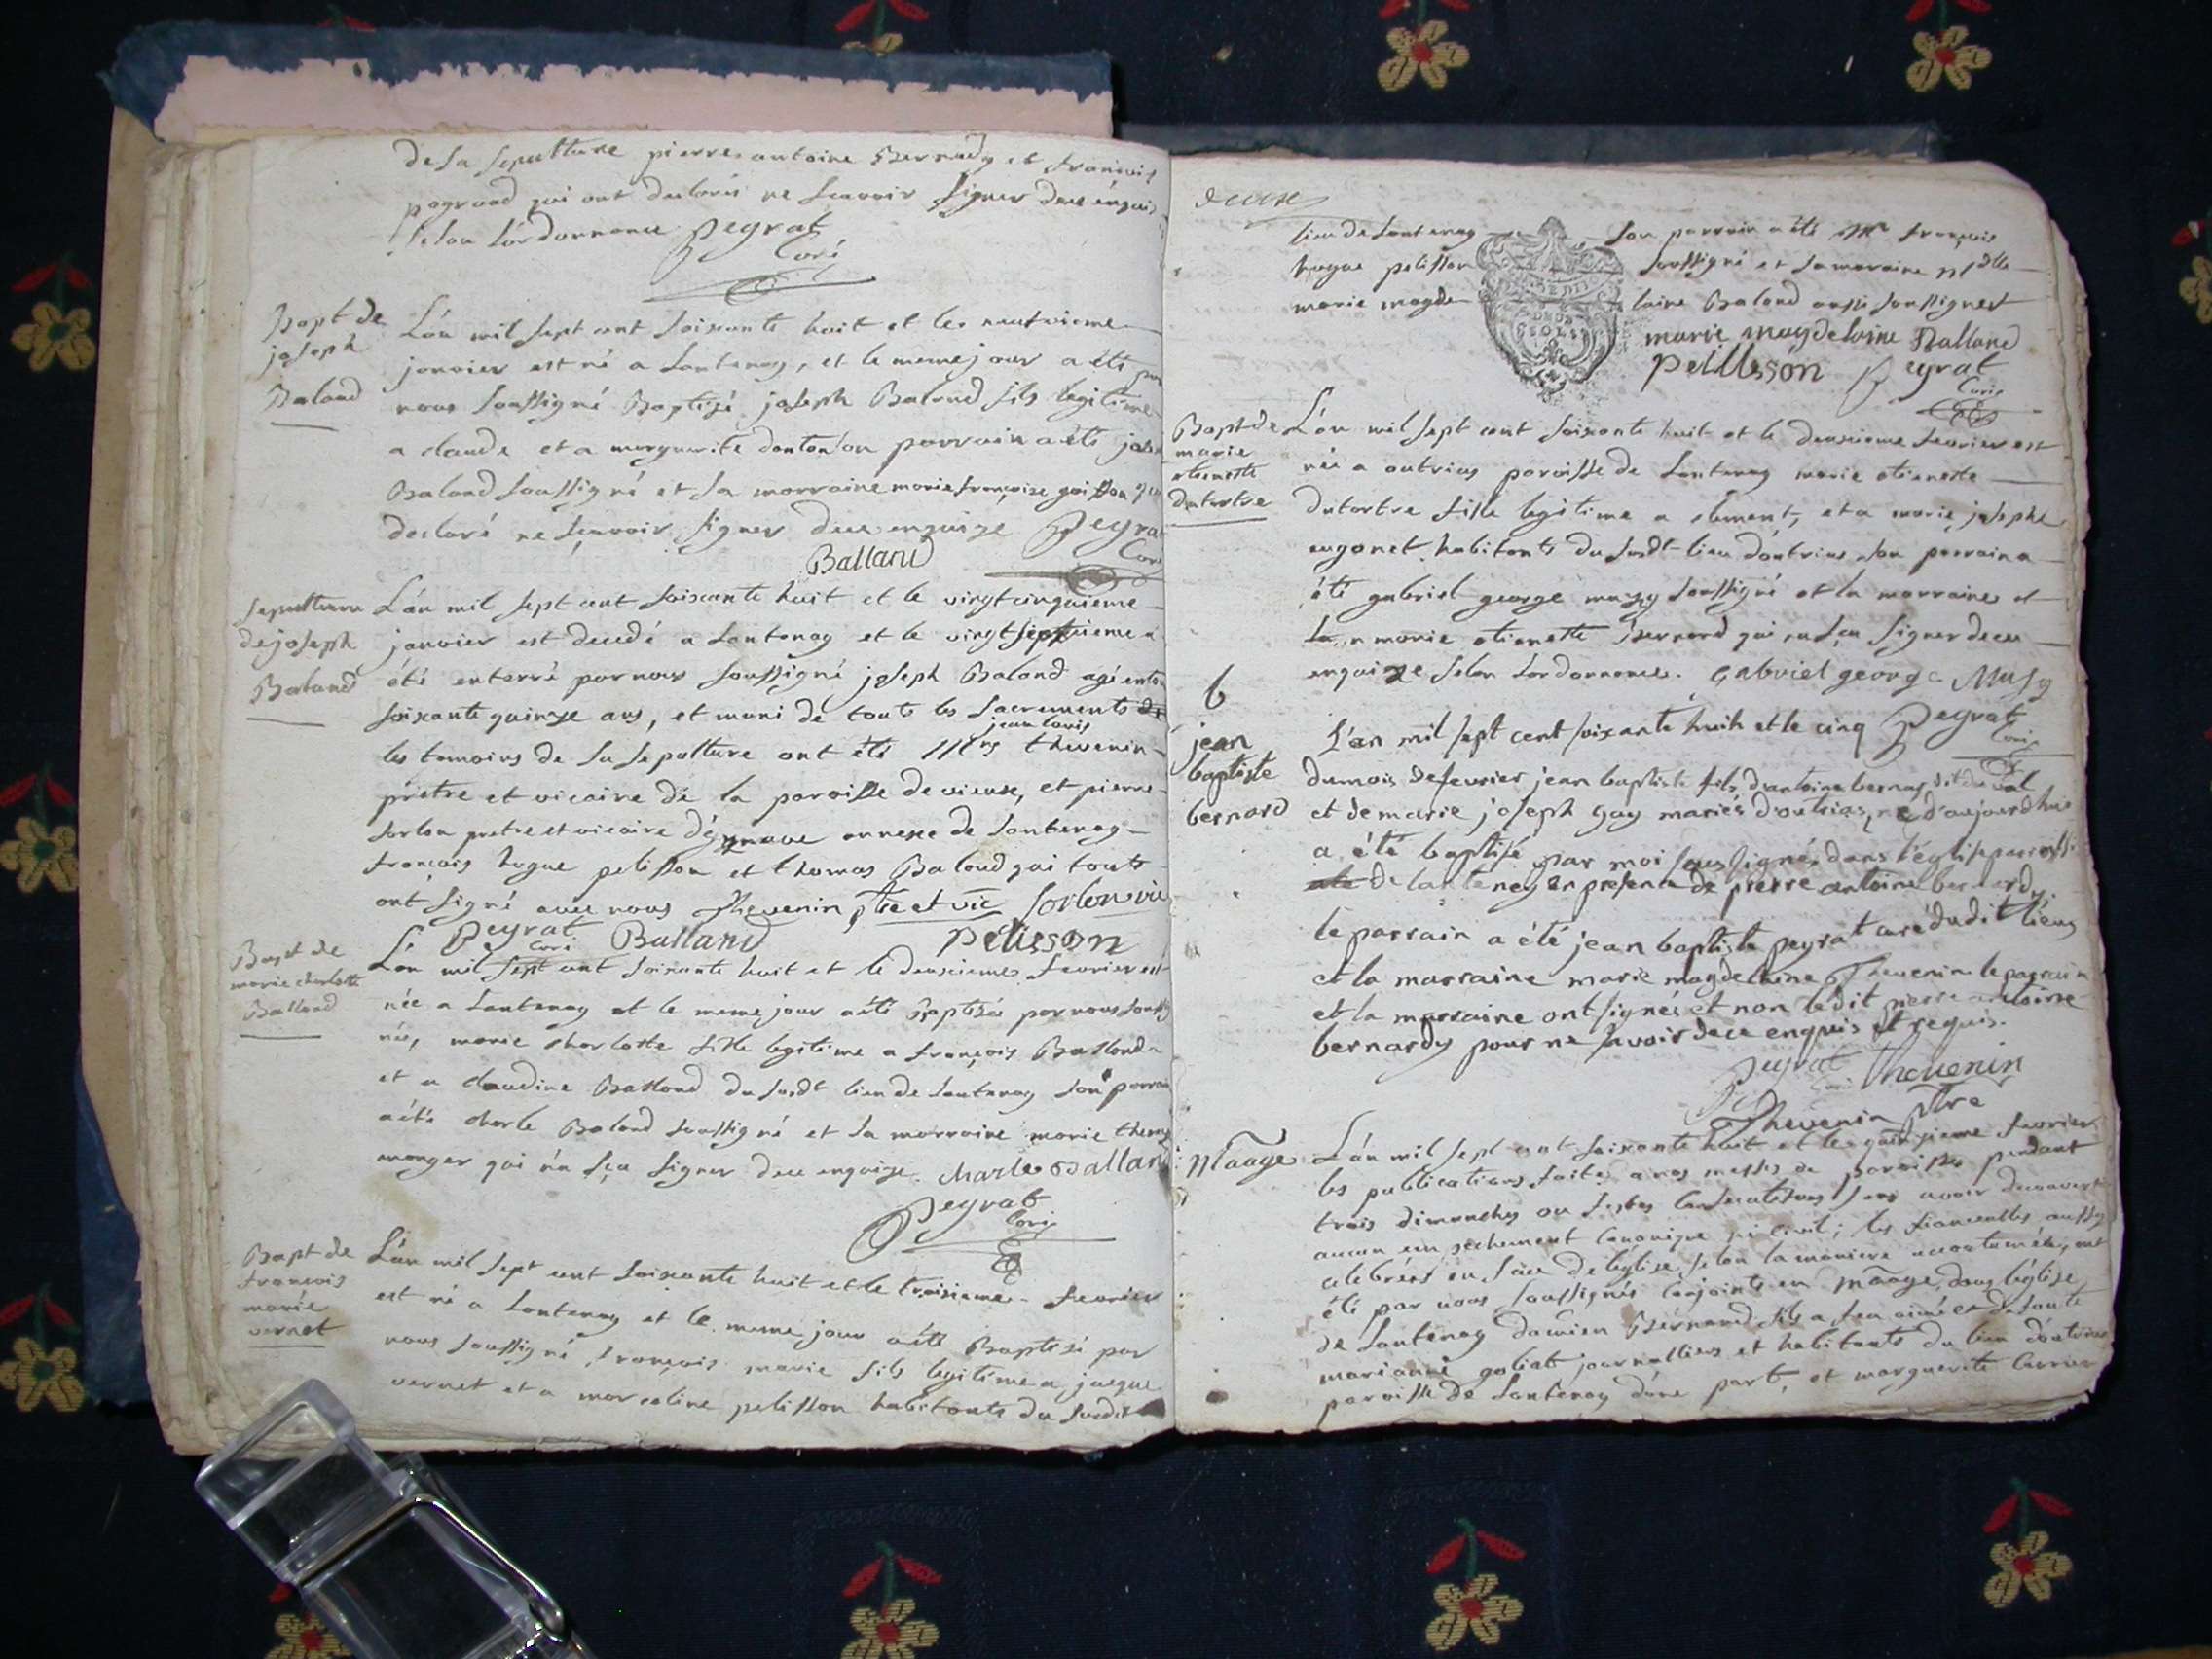 de sa sepulture pierre antoine Bernady et francois
pograud qui ont declarés ne scavoir signer dece enquis
selon lordonnance Peyrat
Curé
Bapt de
joseph
Baland
L'án mil sept cent soixante huit et le neufvieme
janvier est né a Lantenay, et le meme jour a été par
nous soussigné Baptizé joseph Baland fils legitime
a claude et a marguerite danton son parrain a été joseph
Baland soussigné et sa marraine marie françoise goisson
declaré ne sçavoir signer dece enquize Peyrat
Curé
Balland
sepulture
de joseph
Baland
L'án mil sept cent soixante huit et le vingt cinquieme
janvier est decedé a Lantenay et le vingt septieme a
été enterré par nous soussigné joseph Baland agé
soixante quinze ans, et muni de touts les sacrements
jean louis
les temoins de sa sepulture ont été Mrs thevenin
prêtre et vicaire de la paroisse de vieux, et pierre
sorlon pretre et vicaire annexe de Lantenay
françois hugue pelisson et thomas Baland qui touts
ont signé avec nous Thevenin ptre et vic Sorlon vic
Peyrat
Curé Balland Pelisson
Bapt de
marie charlotte
Balland
L'án mil sept cent soixante huit et le deuxieme fevrier est
née a Lantenay et le meme jour a été Baptizée par nous soussig
nés, marie charlotte fille legitime a françois Balland
et a claudine Balland du susdt lieu de Lantenay son parrain
a été charle Baland soussigné et sa marraine marie therese
monger qui n'a sçu signer dece enquize. Charles Balland
Peyrat
Curé
Bapt de
françois
marie
vernet
L'án mil sept cent soixante huit et le troisieme fevrier
est né a Lantenay et le meme jour a été Baptisé par
nous soussigné, françois marie fils legitime a jacque
vernet et a marceline pelisson habitants du susdit
lieu de Lantenay son parrain a été Mr françois
hugue pelisson soussigné et sa maraine
marie magde laine Baland aussi soussignest
marie magdelaine Balland
Pelllissón Peyrat
Curé
Bapt de
marie
etienette
dutartre
L'án mil sept cent soixante huit et le deuxieme fevrier est
née a outrias paroisse de Lantenay marie etienette
dutartre fille legitime a clement, et a marie josephe
eugonet habitants du susdt lieu d'outrias son parrain a
été gabriel george muzy soussigné et la marraine
marie etienette Bernard qui n'a sçu signer dece
enquize selon lordonnance. Gabriel george Musy
Peyrat
Curé
6
jean
baptiste
bernard
L'an mil sept cent soixante huit et le cinq
du mois de fevrier jean baptiste fils d'antoine bernard dit du val
et de marie joseph gay mariés d'outrias, né d'aujourdhuit
a été baptisé par moi soussigné dans l'église paroissi
ale de lanteney en presence de pierre antoine bernardy.
le parrain a été jean baptiste peyrat curé dudit lieu
et la marraine marie magdelaine Thevenin le parrain
et la marraine ont signés et non ledit pierre antoine
bernardy pour ne savoir dece enquis et requis.
Peyrat
Curé Thevenin
Thevenin ptre
Maage
L'án mil sept cent soixante huit et le quinzieme fevrier
les publications faites a nos messes de paroisse pendant
trois dimanches ou festes consecutives sans avoir decouvert
aucun empechement canonique ni civil; les fiancealles aussy
celebrées en face de léglise selon la maniere accoutumée, ont
été par nous soussignés conjoints en maage, dans léglise
de Lantenay damien Bernard fils a feu aimé et defunte
marianne goliat journalliers et habitants du lieu d'outrias
paroisse de Lantenay d'une part, et marguerite